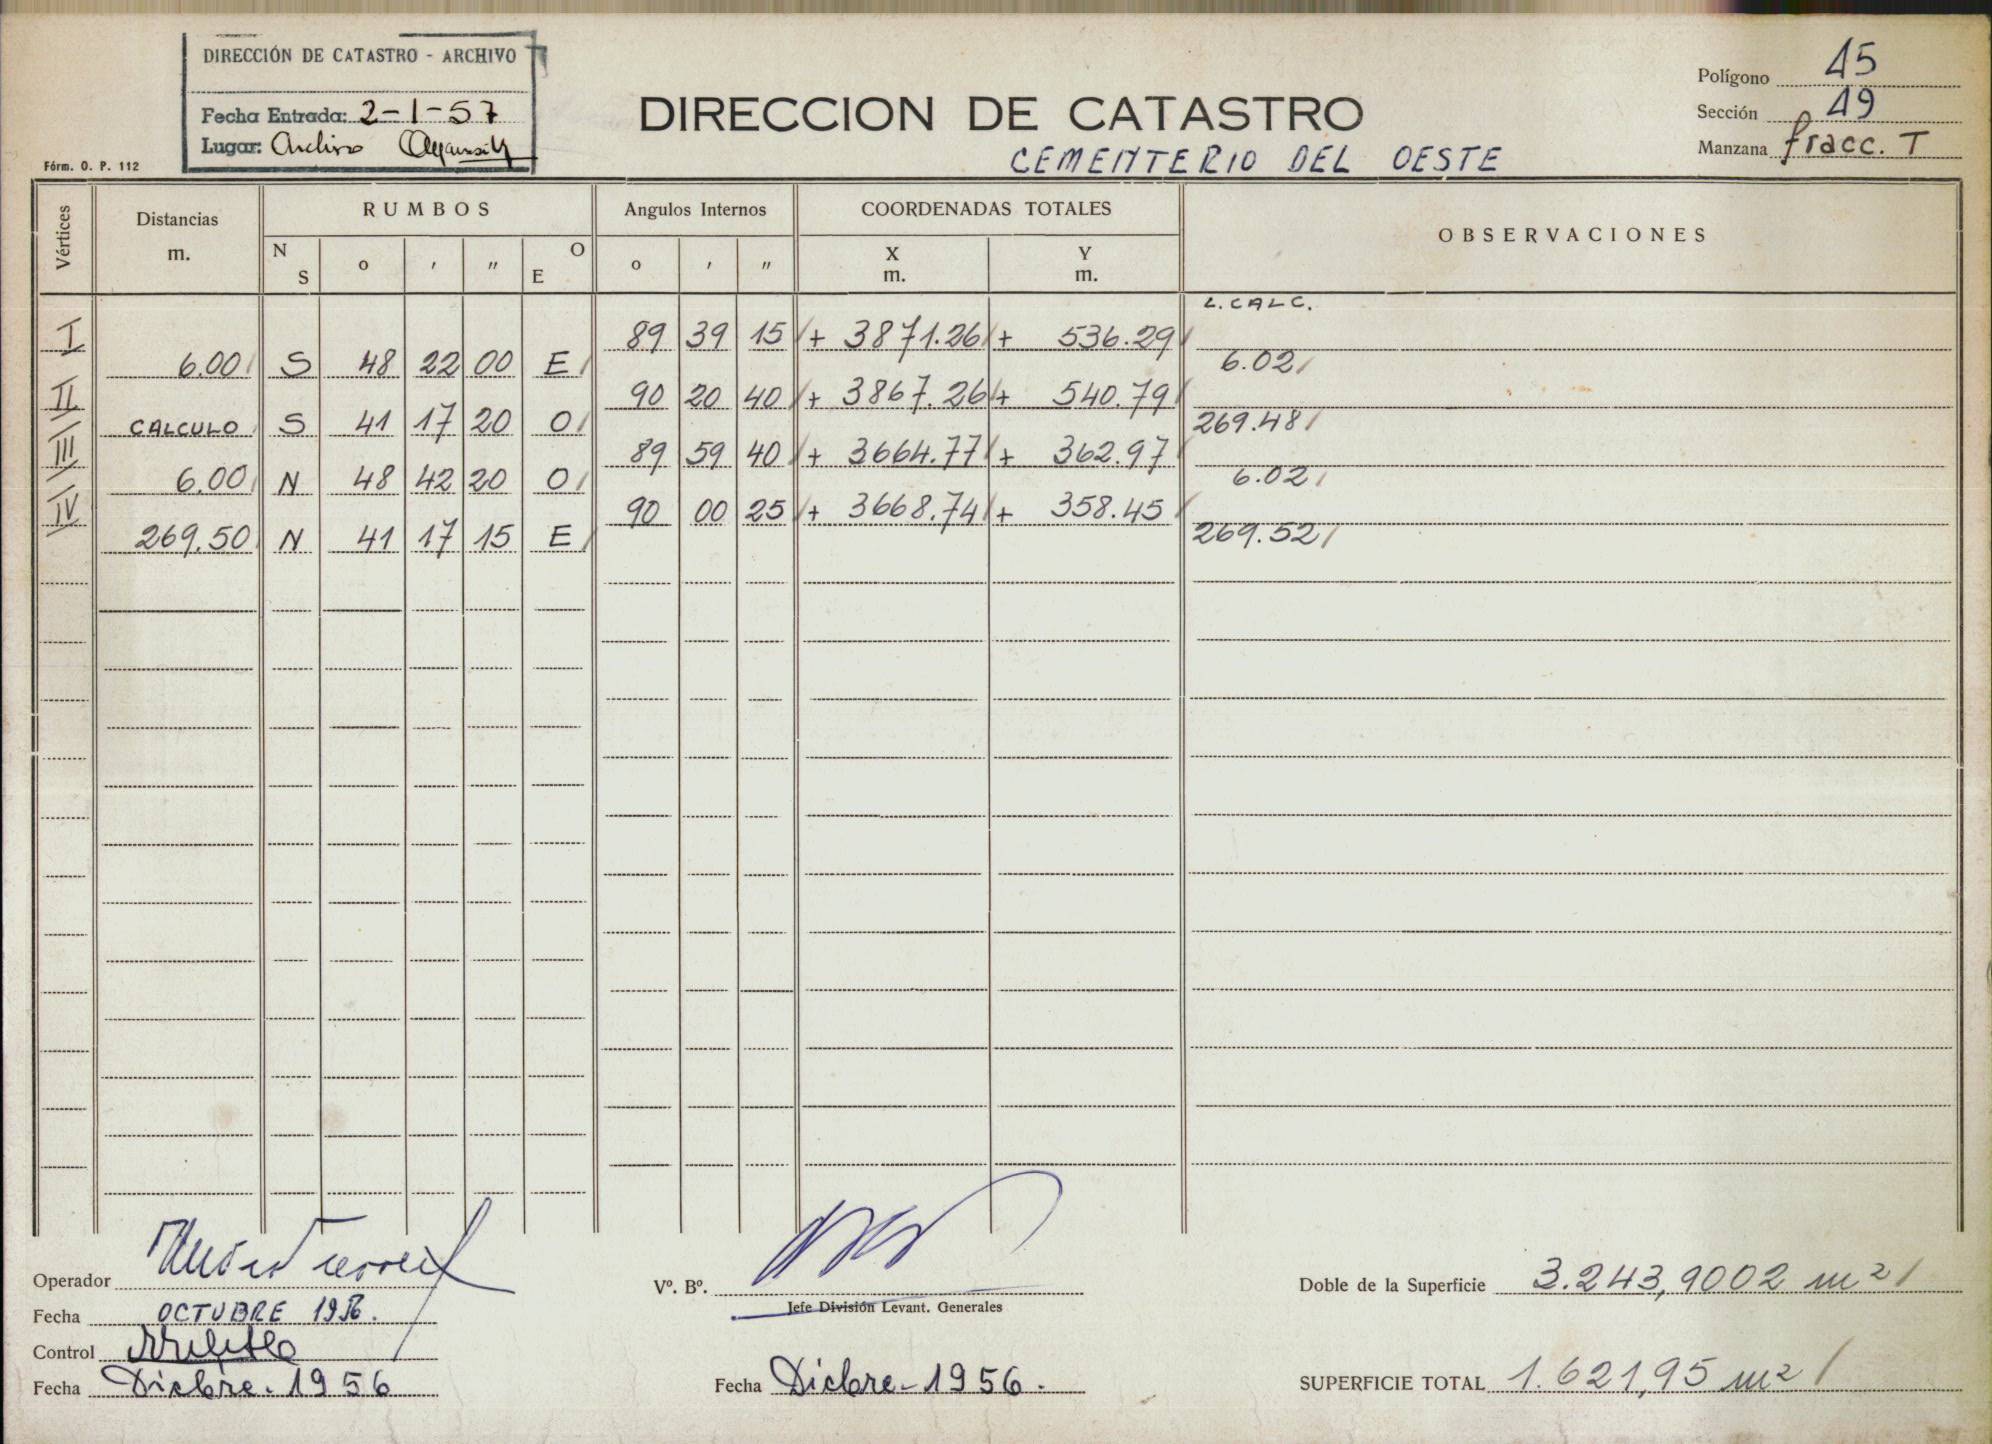 DIRECCIÓN DE CATASTRO - ARCHIVO
Fecha Entrada: 2-1-57
Lugar: Archivo
Fórm. O. P. 112
DIRECCION DE CATASTRO
CEMENTERIO DEL OESTE
Polígono 15
Sección 19
Manzana fracc. T
Vértices Distancias m. RUMBOS Angulos Internos COORDENADAS TOTALES OBSERVACIONES
N S o ' " O E o ' " X m. Y m.
L. CALC.
I 89 39 15 + 3871.26 + 536.29
6.00 S 48 22 00 E 6.02
II 90 20 40 + 3867.26 + 540.79
CALCULO S 41 17 20 O 269.48
III 89 59 40 + 3664.77 + 362.97
6.00 N 48 42 20 O 6.02
IV 90 00 25 + 3668.74 + 358.45
269.50 N 41 17 15 E 269.52
Operador
Fecha OCTUBRE 1956.
Control
Fecha Dicbre. 1956
Vº. Bº.
Jefe División Levant. Generales
Fecha Dicbre - 1956.
Doble de la Superficie 3.243,9002 m²
SUPERFICIE TOTAL 1.621,95 m²